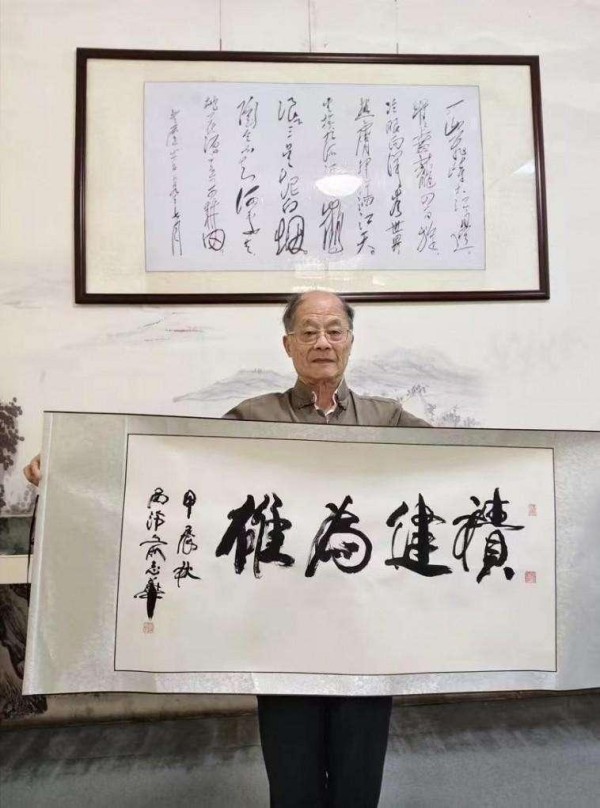 一山飛峙大江邊
躍上葱蘢四百旋
冷眼向洋看世界
熱膚揮汗灑江天
雲橫九派浮黃鶴
浪下三吳起白烟
陶令不知何處去
桃花源里可耕田
一九五九年七月
積健為雄
甲辰秋
志華